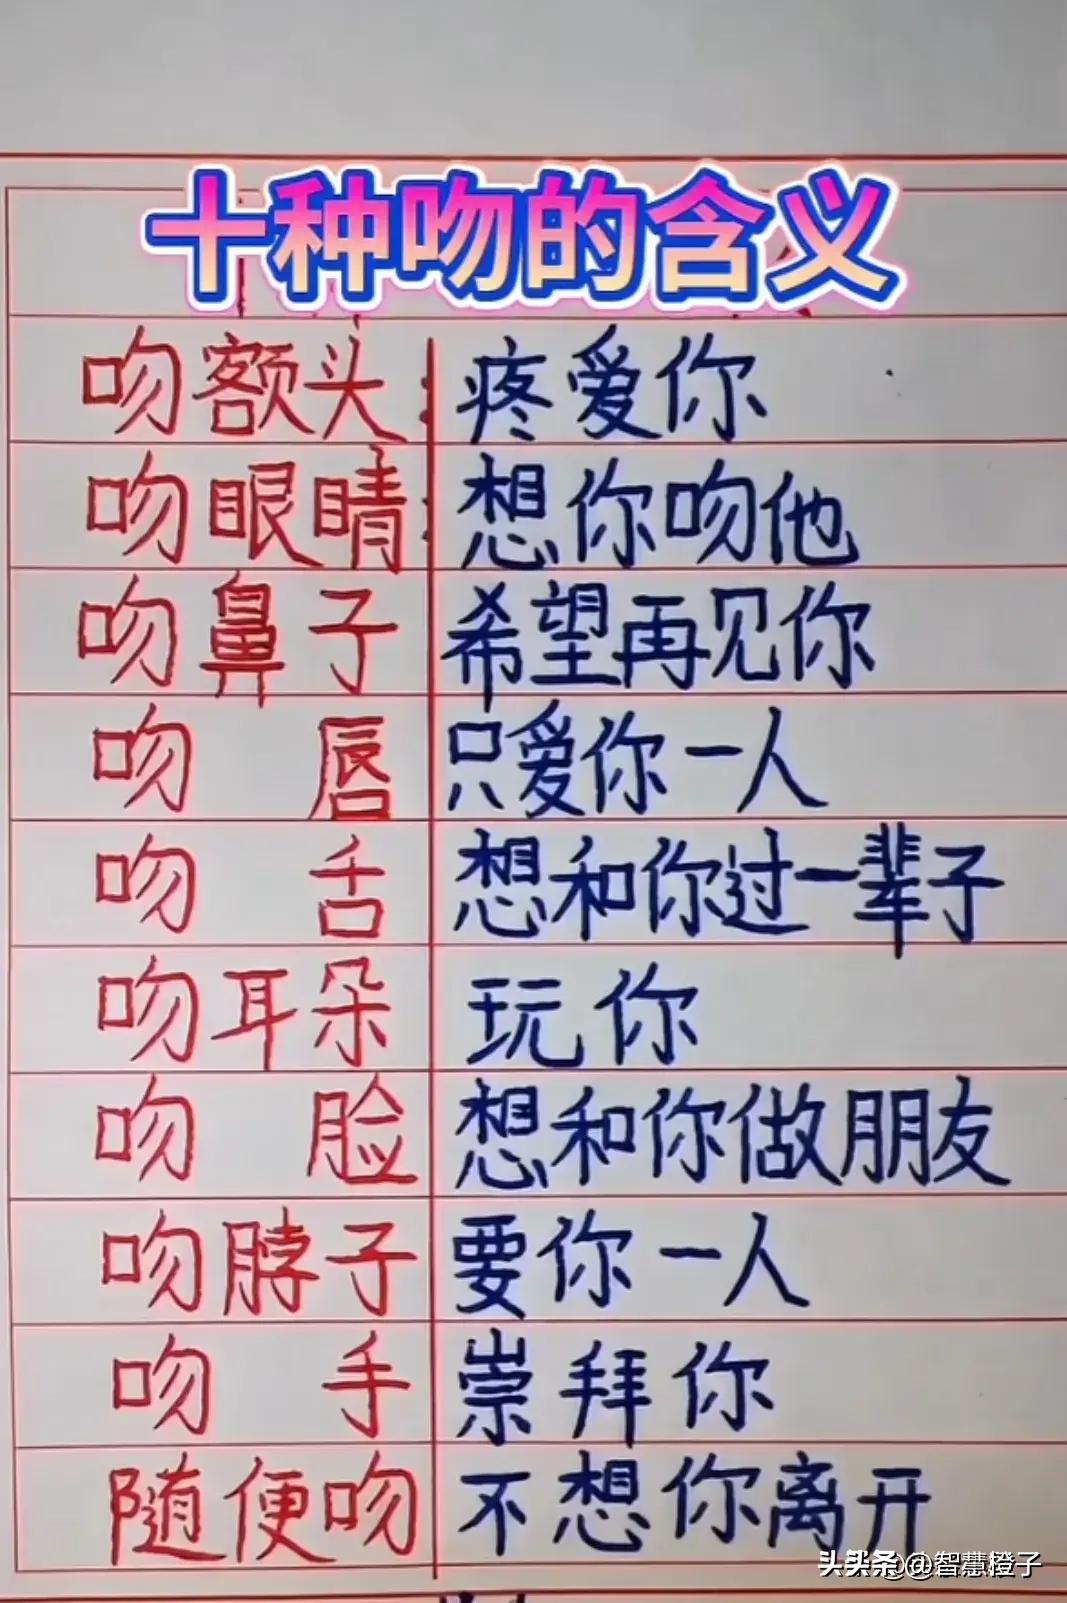 十种吻的含义
吻额头：疼爱你
吻眼睛：想你吻他
吻鼻子 希望再见你
吻 唇 只爱你一人
吻 舌 想和你过一辈子
吻耳朵 玩你
吻 脸 想和你做朋友
吻脖子 要你一人
吻 手 崇拜你
随便吻 不想你离开
头条@智慧橙子